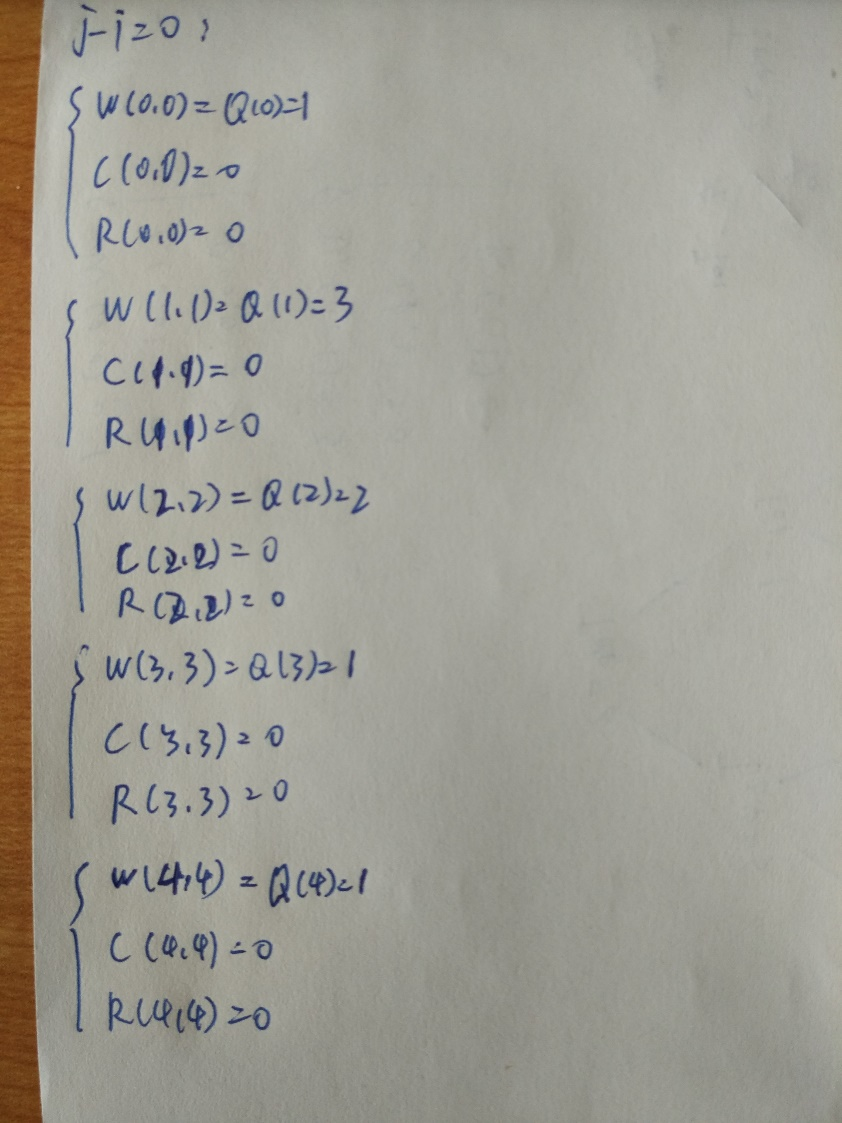 j-i=0:
W(0,0)=Q(0)=1
C(0,0)=0
R(0,0)=0
W(1,1)=Q(1)=3
C(1,1)=0
R(1,1)=0
W(2,2)=Q(2)=2
C(2,2)=0
R(2,2)=0
W(3,3)=Q(3)=1
C(3,3)=0
R(3,3)=0
W(4,4)=Q(4)=1
C(4,4)=0
R(4,4)=0